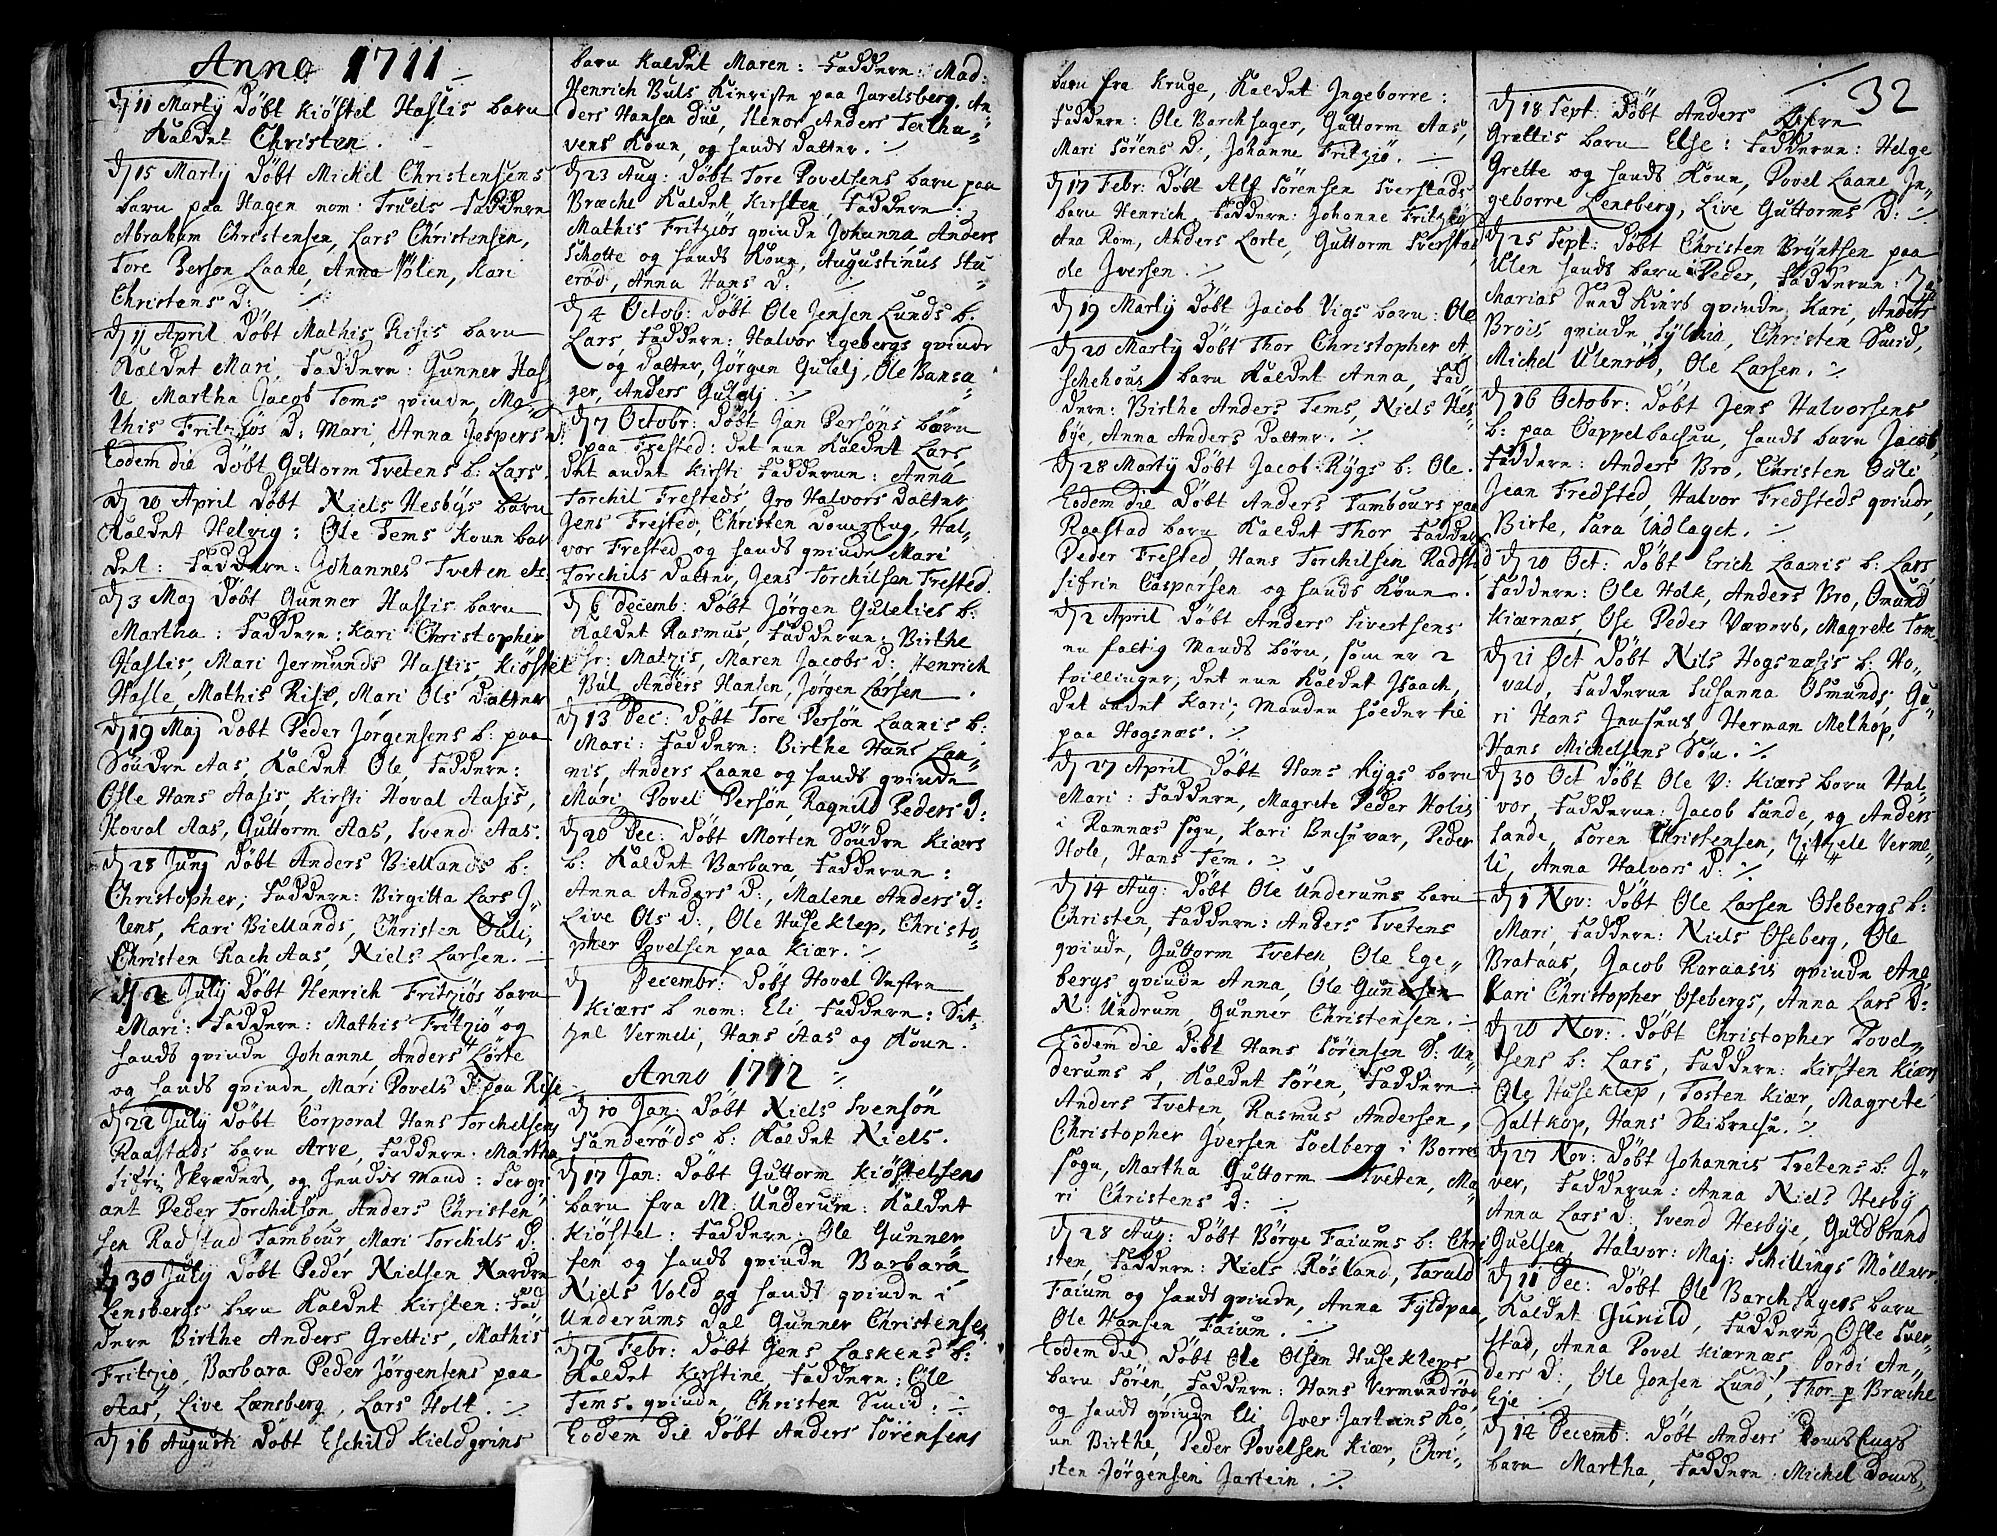 Anno 1711
d 11 Martij Döbt Kiöstel Haslis barn
Kaldet Christen.
d 15 Martij Döbt Mickel Christensens
barn paa Hagen nom: Truels Faddere
Abraham Christensen, Lars Christensen,
Tore Berson Laane, Anna Wölen, Kari
Christens D:
d 11 April Döbt Mathis Risis barn
Kaldet Mari, Faddere: Gunner Has-
le Martha Jacob Toms qvinde, Ma-
this Fritziös D: Mari, Anna Jespers d
Eodem die Döbt Guttorm Tvetens b: Lars.
d 20 April Döbt Niels Hesbÿs barn
Kaldet Helvig: Ole Tems Kone bar
det: Faddere: Johannes Tveten etc.
d 3 Maj Döbt Gunner Haslis barn
Martha: Faddere: Kari Christopher
Haslis, Mari Jermunds Haslis, Kiöstel
Hasle, Mathis Rise, Mari Ols Datter
d 19 Maj Döbt Peder Jörgensens b: paa
Söndre Aas, Kaldet Ole, Faddere:
Osle Hans Aasis, Kirsti Hoval Aasis,
Hoval Aas, Guttorm Aas, Svend Aas.
d 28 Junj Döbt Anders Biellands b:
Christopher, Faddere: Birgitta Lars J-
lens, Kari Biellands, Christen Ouli,
Christen Rach Aas, Niels Larsen.
d 2 Julij Döbt Henrich Fritziös barn
Mari: Faddere: Mathis Fritziö og
hands qvinde Johanne, Anders Lörte
og hands qvinde, Mari Povels D: paa Rise
d 22 July Döbt Corporal Hans Torchelsens
Raastads barn Arve, Faddere: Martha
Sifri Skræders, og hendis Mand: Sergi
ant Peder Torchilsön, Anders Christen
sen Radstad Tambour, Mari Torchils D.
d 30 July Döbt Peder Nielsen Nerdre
Lensbergs barn Kaldet Kirsten: Fad
dere Birthe Anders Grettis, Mathis
Fritziö, Barbara Peder Jörgensens paa
Aas, Live Lænsberg, Lars Holt.
d 16 Augusti Döbt Eschild Kieldgrins
barn Kaldet Maren: Faddere: Mad:
Henrich Buls Kieriste paa Jarelsberg. An-
ders Hansen Due, Stenor Anders Tertha-
vens Kone, og hands Datter.
d 23 Aug: Döbt Tore Povelsens barn paa
Bræche Kaldet Kirsten, Faddere:
Mathis Fritziös qvinde Johanna, Anders
Schotte og hands Kone, Augustinus Stu
eröd, Anna Hans D:
d 4 Octob: Döbt Ole Jensen Lunds b:
Lars, Faddere: Halvor Egebergs qvinde
og Datter, Jörgen Gulelj, Ole Bansa-
ger, Anders Gulelj.
d 7 Octobr: Döbt Jan Persöns barn
paa Frested: det ene Kaldet Lars,
det andet Kirsti Faddere: Anna
Torchil Fresteds, Gro Halvors Datter,
Jens Frested, Christen Doms Eng, Hal-
vor Frested og hands qvinde, Mari
Torchils Datter, Jens Torchilsen Frested.
d 6 Decemb: Döbt Jörgen Gulelies b:
Kaldet Rasmus, Faddere: Birthe
hr: Matzis, Maren Jacobs D: Henrich
Bul Anders Hansen, Jörgen Larsen.
d 13 Dec: Döbt Tore Persön Laanis b:
Mari: Faddere: Birthe Hans Laa-
nis, Anders Laane og hands qvinde
Mari, Povel Persön, Ragnild Peders D:
d 20 Dec: Döbt Morten Söndre Kiærs
b: Kaldet Barbara, Faddere:
Anna Anders D:, Malene Anders D:
Live Ols D:, Ole Huseklep, Christo-
pher Povelsen paa Kiær.
d Decembr: Döbt Hovel Vestre
Kiærs b nom: Eli, Faddere: Sit-
zel Vermeli, Hans Aas og Kone.
Anno 1712
d 10 Jan: Döbt Niels Svensön
Sanderöds b: Kaldet Niels.
d 17 Jan: Döbt Guttorm Kiöstelsens
barn fra M: Underum: Kaldet
Kiöstel: Faddere: Ole Gunner
sen og hands qvinde Barbara,
Niels Vold og hands qvinde i
Underums dal Gunner Christensen
d 7 Febr: Döbt Jens Laskens b:
Kaldet Kirstine, Faddere: Ole
Tems qvinde, Christen Smid:
Eodem die Döbt Anders Sörensens
barn fra Kruge, Kaldet Ingeborre:
Faddere: Ole Barchsager, Guttorm Aas,
Mari Sörens D:, Johanne Fritziö.
d 17 Febr: Döbt Alf Sörensen Sverstads
barn Henrich, Faddere: Johanne Fritziö
Ana Rom, Anders Lorte, Guttorm Sverstad,
Ole Jversen.
d 19 Martij Döbt Jacob Vigs barn: Ole
d 20 Martij Döbt Thor Christopher A
schehous barn Kaldet Anna, Fad
dere: Birthe Anders Tems, Niels Hes-
bye, Anna Anders Datter.
d 28 Martij Döbt Jacob Rÿgs b: Ole.
Eodem die Döbt Anders Tambours paa
Raastad barn Kaldet Thor, Faddere
Peder Frested, Hans Torchilsen Radstad
Sifrin Caspersen og hands Kone.
d 2 April Döbt Anders Sivertsens
en fattig Mands börn, som er 2
tvillinger, det ene Kaldet Isaach,
det andet Kari; Manden holder til
paa Hogsnæs.
d 27 April Döbt Hans Rÿgs barn
Mari: Faddere, Magrete Peder Holis
i Ramnæs Sogn, Kari Bechevar, Peder
Hole, Hans Tem.
d 14 Aug: Döbt Ole Underums barn
Christen, Faddere: Anders Tvetens
qvinde, Guttorm Tveten Ole Ege-
bergs qvinde Anna, Ole Gunersen
N: Undrum, Gunner Christensen.
Eodem die Döbt Hans Sörensen S: Un
derums b, Kaldet Sören, Faddere
Anders Tveten, Rasmus Andersen,
Christopher Jversen Soelberg i Borre
Sogn, Martha Guttorm Tveten, Ma-
ri Christens D:
d 28 Aug: Döbt Börge Faiums b: Chri
sten, Faddere: Niels Rösland, Tarald
Faium og hands qvinde, Anna Fÿldpaa,
Ole Hansen Faium.
Eodem die Döbt Ole Olsen Husekleps
barn Sören, Faddere: Hans Vermundröd
og hands qvinde Eli, Jver Jarteins Ko-
ne Birthe, Peder Povelsen Kiær, Chri-
sten Jörgensen Jartein.
32
d 18 Sept: Döbt Anders Öfre
Grettis barn Else: Faddere: Helge
Grette og hands Kone, Povel Laane, In-
geborre Lensberg, Live Guttorms D:
d 25 Sept: Döbt Christen Brÿntsen paa
Ulen hands barn Peder, Faddere: Za
Marias Sund Kiers qvinde Kari, Anders
Brois qvinde Sÿlvia, Christen Smid,
Michel Ulenröd, Ole Larsen.
d 16 Octobr: Döbt Jens Halvorsens
b: paa Cappelbachen, hands barn Jacob,
Faddere: Anders Bro, Christen Ouli
Jean Fredsted, Halvor Fredsteds qvinde,
Birte, Sara Indlaget.
d 20 Oct: Döbt Erich Laanis b: Lars,
Faddere: Ole Holk, Anders Bro, Omund
Kiærnæs, Ose Peder Vævers, Magrete Tom
d 21 Oct Döbt Nils Hogsnæsis b: Ho-
vald, Faddere Susanna Osmunds, Gu-
ri Hans Jensens Herman Melhop,
Hans Michelsens Sön.
d 30 Oct Döbt Ole V: Kiærs barn Hal-
vor, Faddere: Jacob Sande, og Anders
Sande, Sören Christensen, Zitzele Verme-
li, Anna Halvors D:
d 1 Nov: Döbt Ole Larsen Osebergs b:
Mari, Faddere: Niels Oseberg, Ole
Brataas, Jacob Raraasis qvinde Ane
Kari Christopher Osebergs, Anna Lars D:
d 20 Nov: Döbt Christopher Povel-
sens b: Lars, Faddere: Kirsten Kiær
Ole Huseklep, Tosten Kiær, Magrete
Saltkop, Hans Skibrech.
d 27 Nov: Döbt Johannis Tvetens b: J-
ver, Faddere: Anna Niels Hesbÿ,
Anna Lars d:, Svend Hesbÿe, Guldbrand
Guelsen, Halvor: Maj: Schillings Möller.
d 11 Dec: Döbt Ole Barchsagers barn
Kaldet Gunild, Faddere Osle Sver-
stad, Anna Povel Kiærnæs, Pordi An-
ders D:, Ole Jonsen Lund, Thor p Bræche
Eje
d 14 Decemb: Döbt Anders Doms Engs
barn Martha, Faddere: Michel Doms,